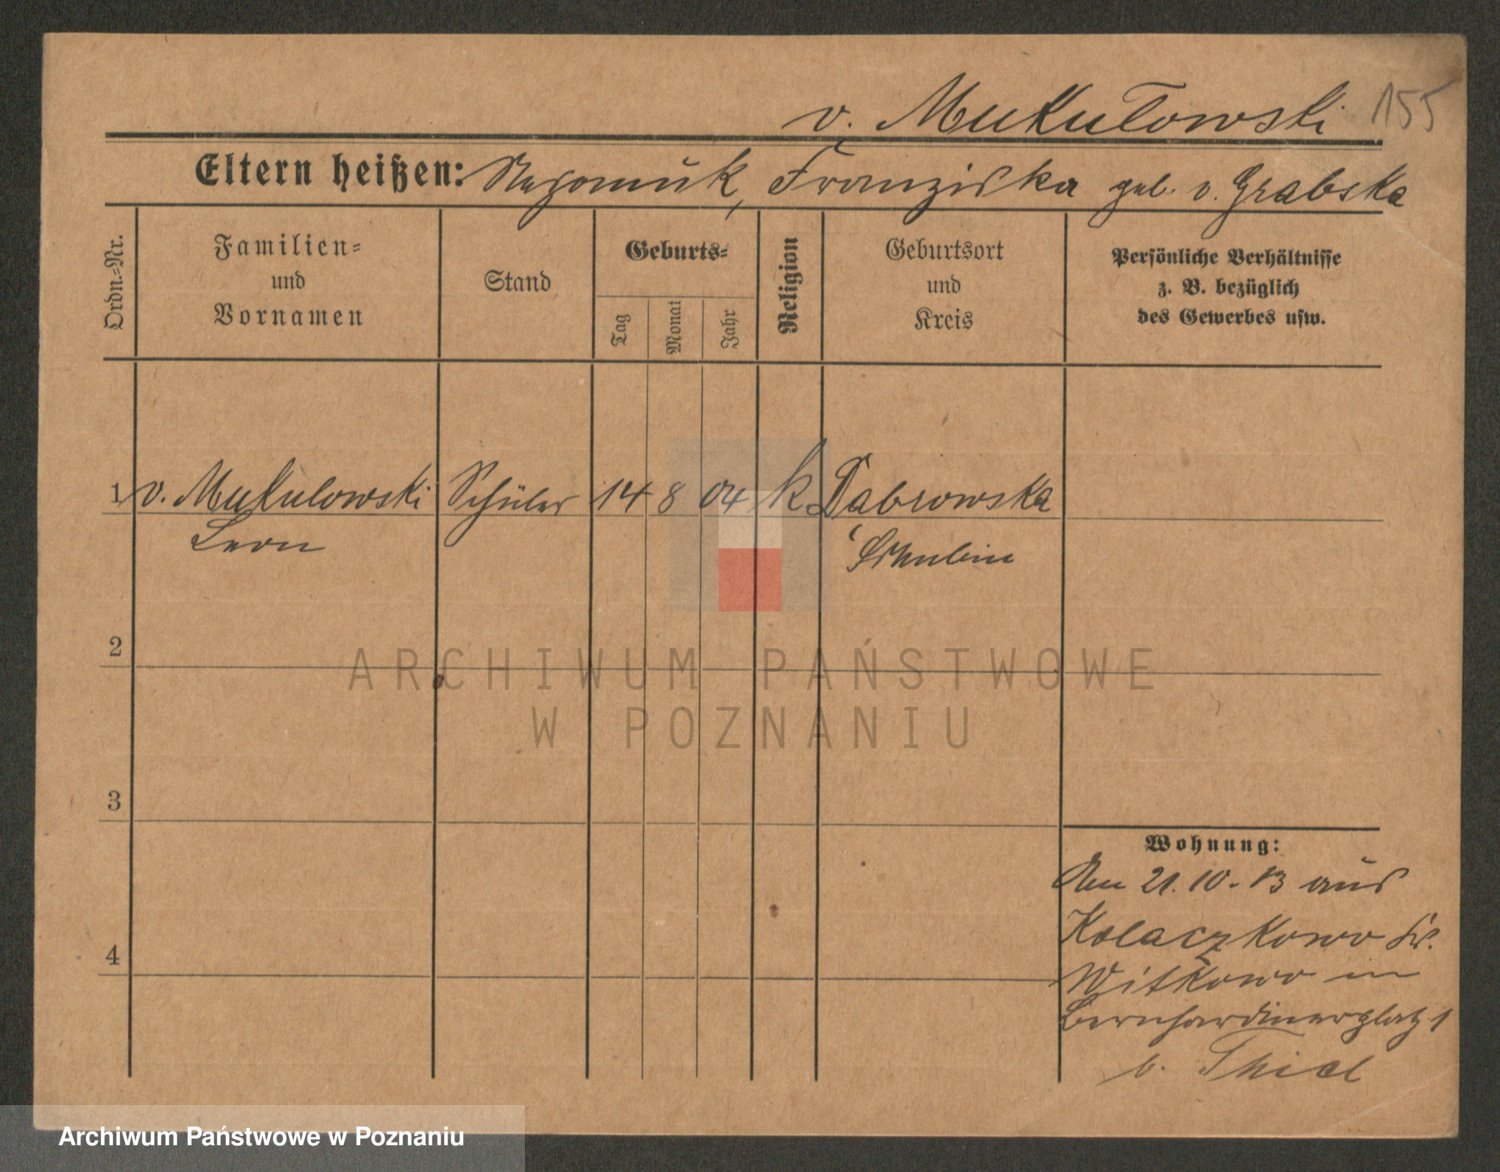 v. Mukułowski 155
Eltern heißen: Nepomuk, Franziska geb. v. Grabska
Ordn.-Nr.
Familien-
und
Vornamen
Stand
Geburts-
Tag
Monat
Jahr
Religion
Geburtsort
und
Kreis
Persönliche Verhältnisse
z. B. bezüglich
des Gewerbes usw.
1 v. Mukulowski Schüler 14 8 04 k Dabrowska
Leon Schubin
2
ARCHIWUM PAŃSTWOWE
W POZNANIU
3
Wohnung:
Am 21.10.13 aus
Kolaczkowo Kr.
4
Witkowo in
Bernhardinerplatz 1
b. Thiel
Archiwum Państwowe w Poznaniu